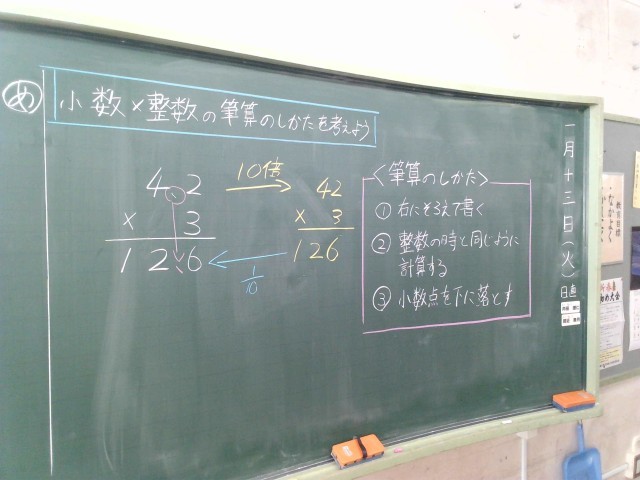 め
小数×整数の筆算のしかたを考えよう
4.2
× 3
12.6
10倍
1/10
42
× 3
126
<筆算のしかた>
① 右にそろえて書く
② 整数の時と同じように
計算する
③ 小数点を下に落とす
一月十三日(火)
日直
教育目標